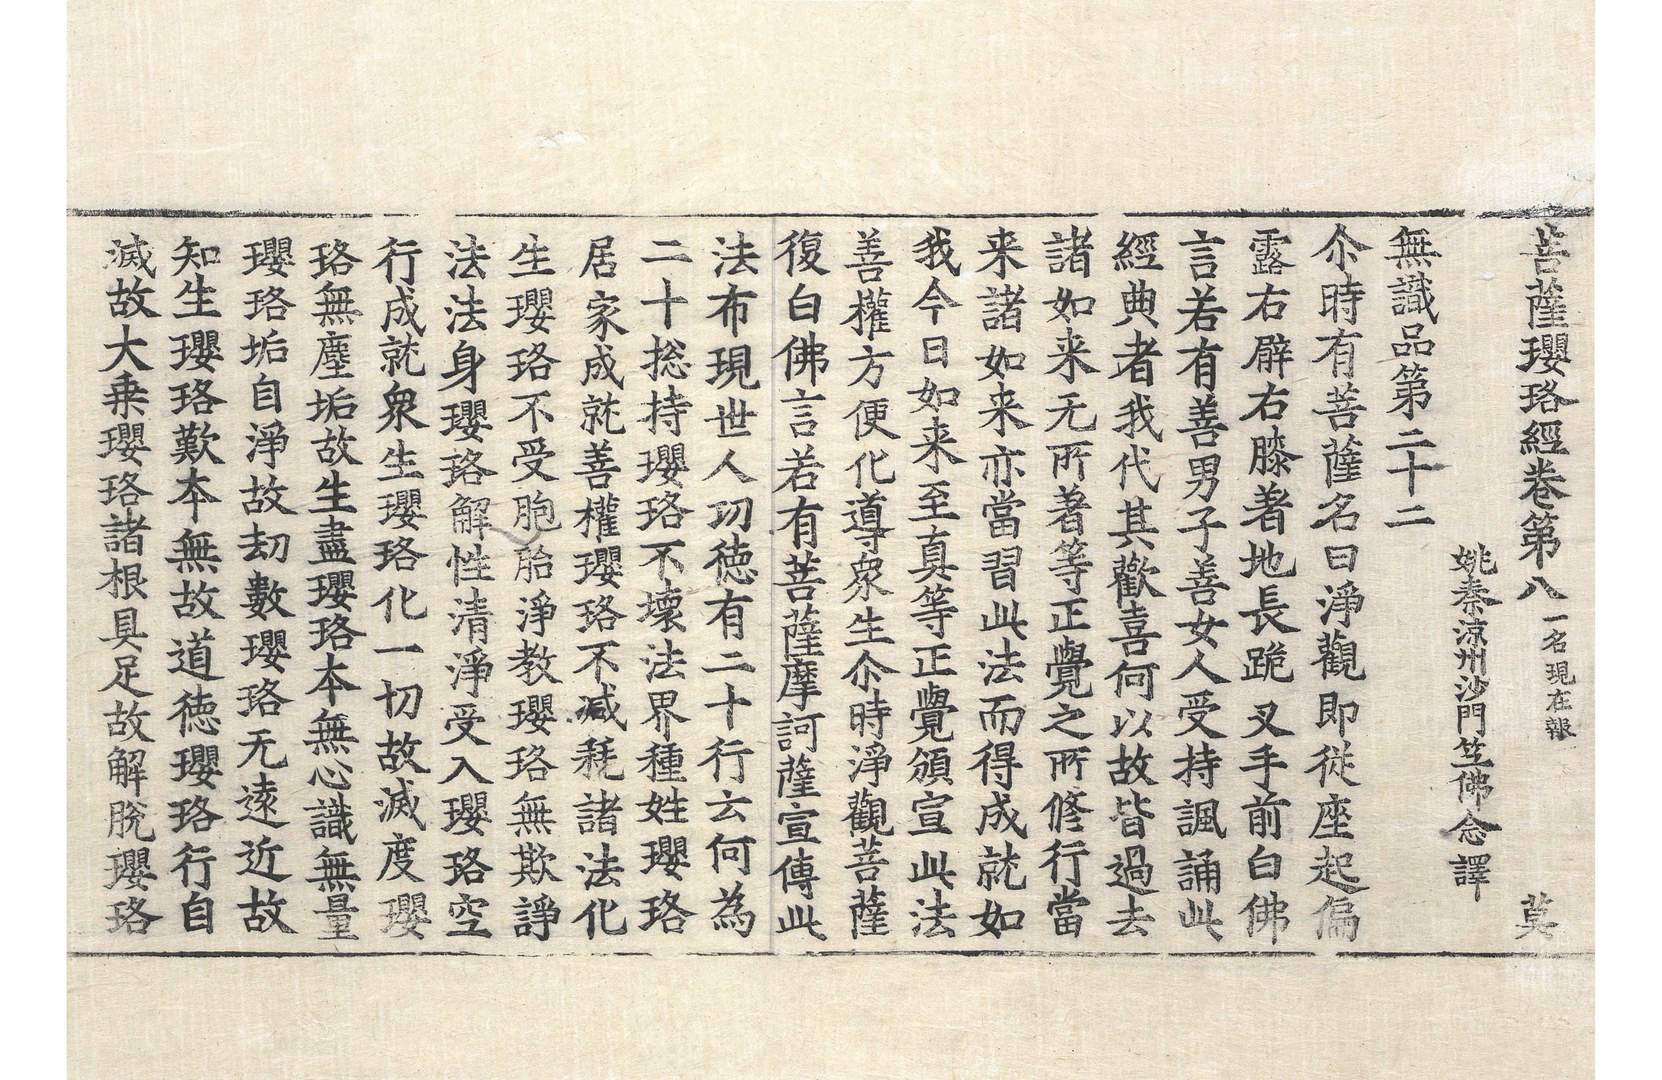 菩薩瓔珞經卷第八 一名現在報 莫
姚秦涼州沙門竺佛念譯
無識品第二十二
尒時有菩薩名曰淨觀即從座起偏
露右臂右膝著地長跪叉手前白佛
言若有善男子善女人受持諷誦此
經典者我代其歡喜何以故皆過去
諸如来无所著等正覺之所修行當
来諸如来亦當習此法而得成就如
我今日如来至真等正覺頒宣此法
善權方便化導衆生尒時淨觀菩薩
復白佛言若有菩薩摩訶薩宣傳此
法布現世人功徳有二十行云何為
二十捴持瓔珞不壞法界種姓瓔珞
居家成就善權瓔珞不減耗諸法化
生瓔珞不受胞胎淨教瓔珞無欺諍
法法身瓔珞解性清淨受入瓔珞空
行成就衆生瓔珞化一切故滅度瓔
珞無塵垢故生盡瓔珞本無心識無量
瓔珞垢自淨故劫數瓔珞无遠近故
知生瓔珞歎本無故道徳瓔珞行自
滅故大乗瓔珞諸根具足故解脫瓔珞